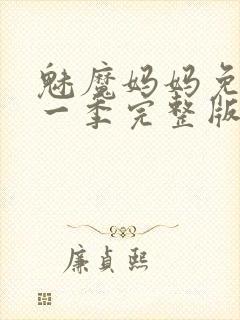 魅魔妈妈免
一季完整版
廉贞熙